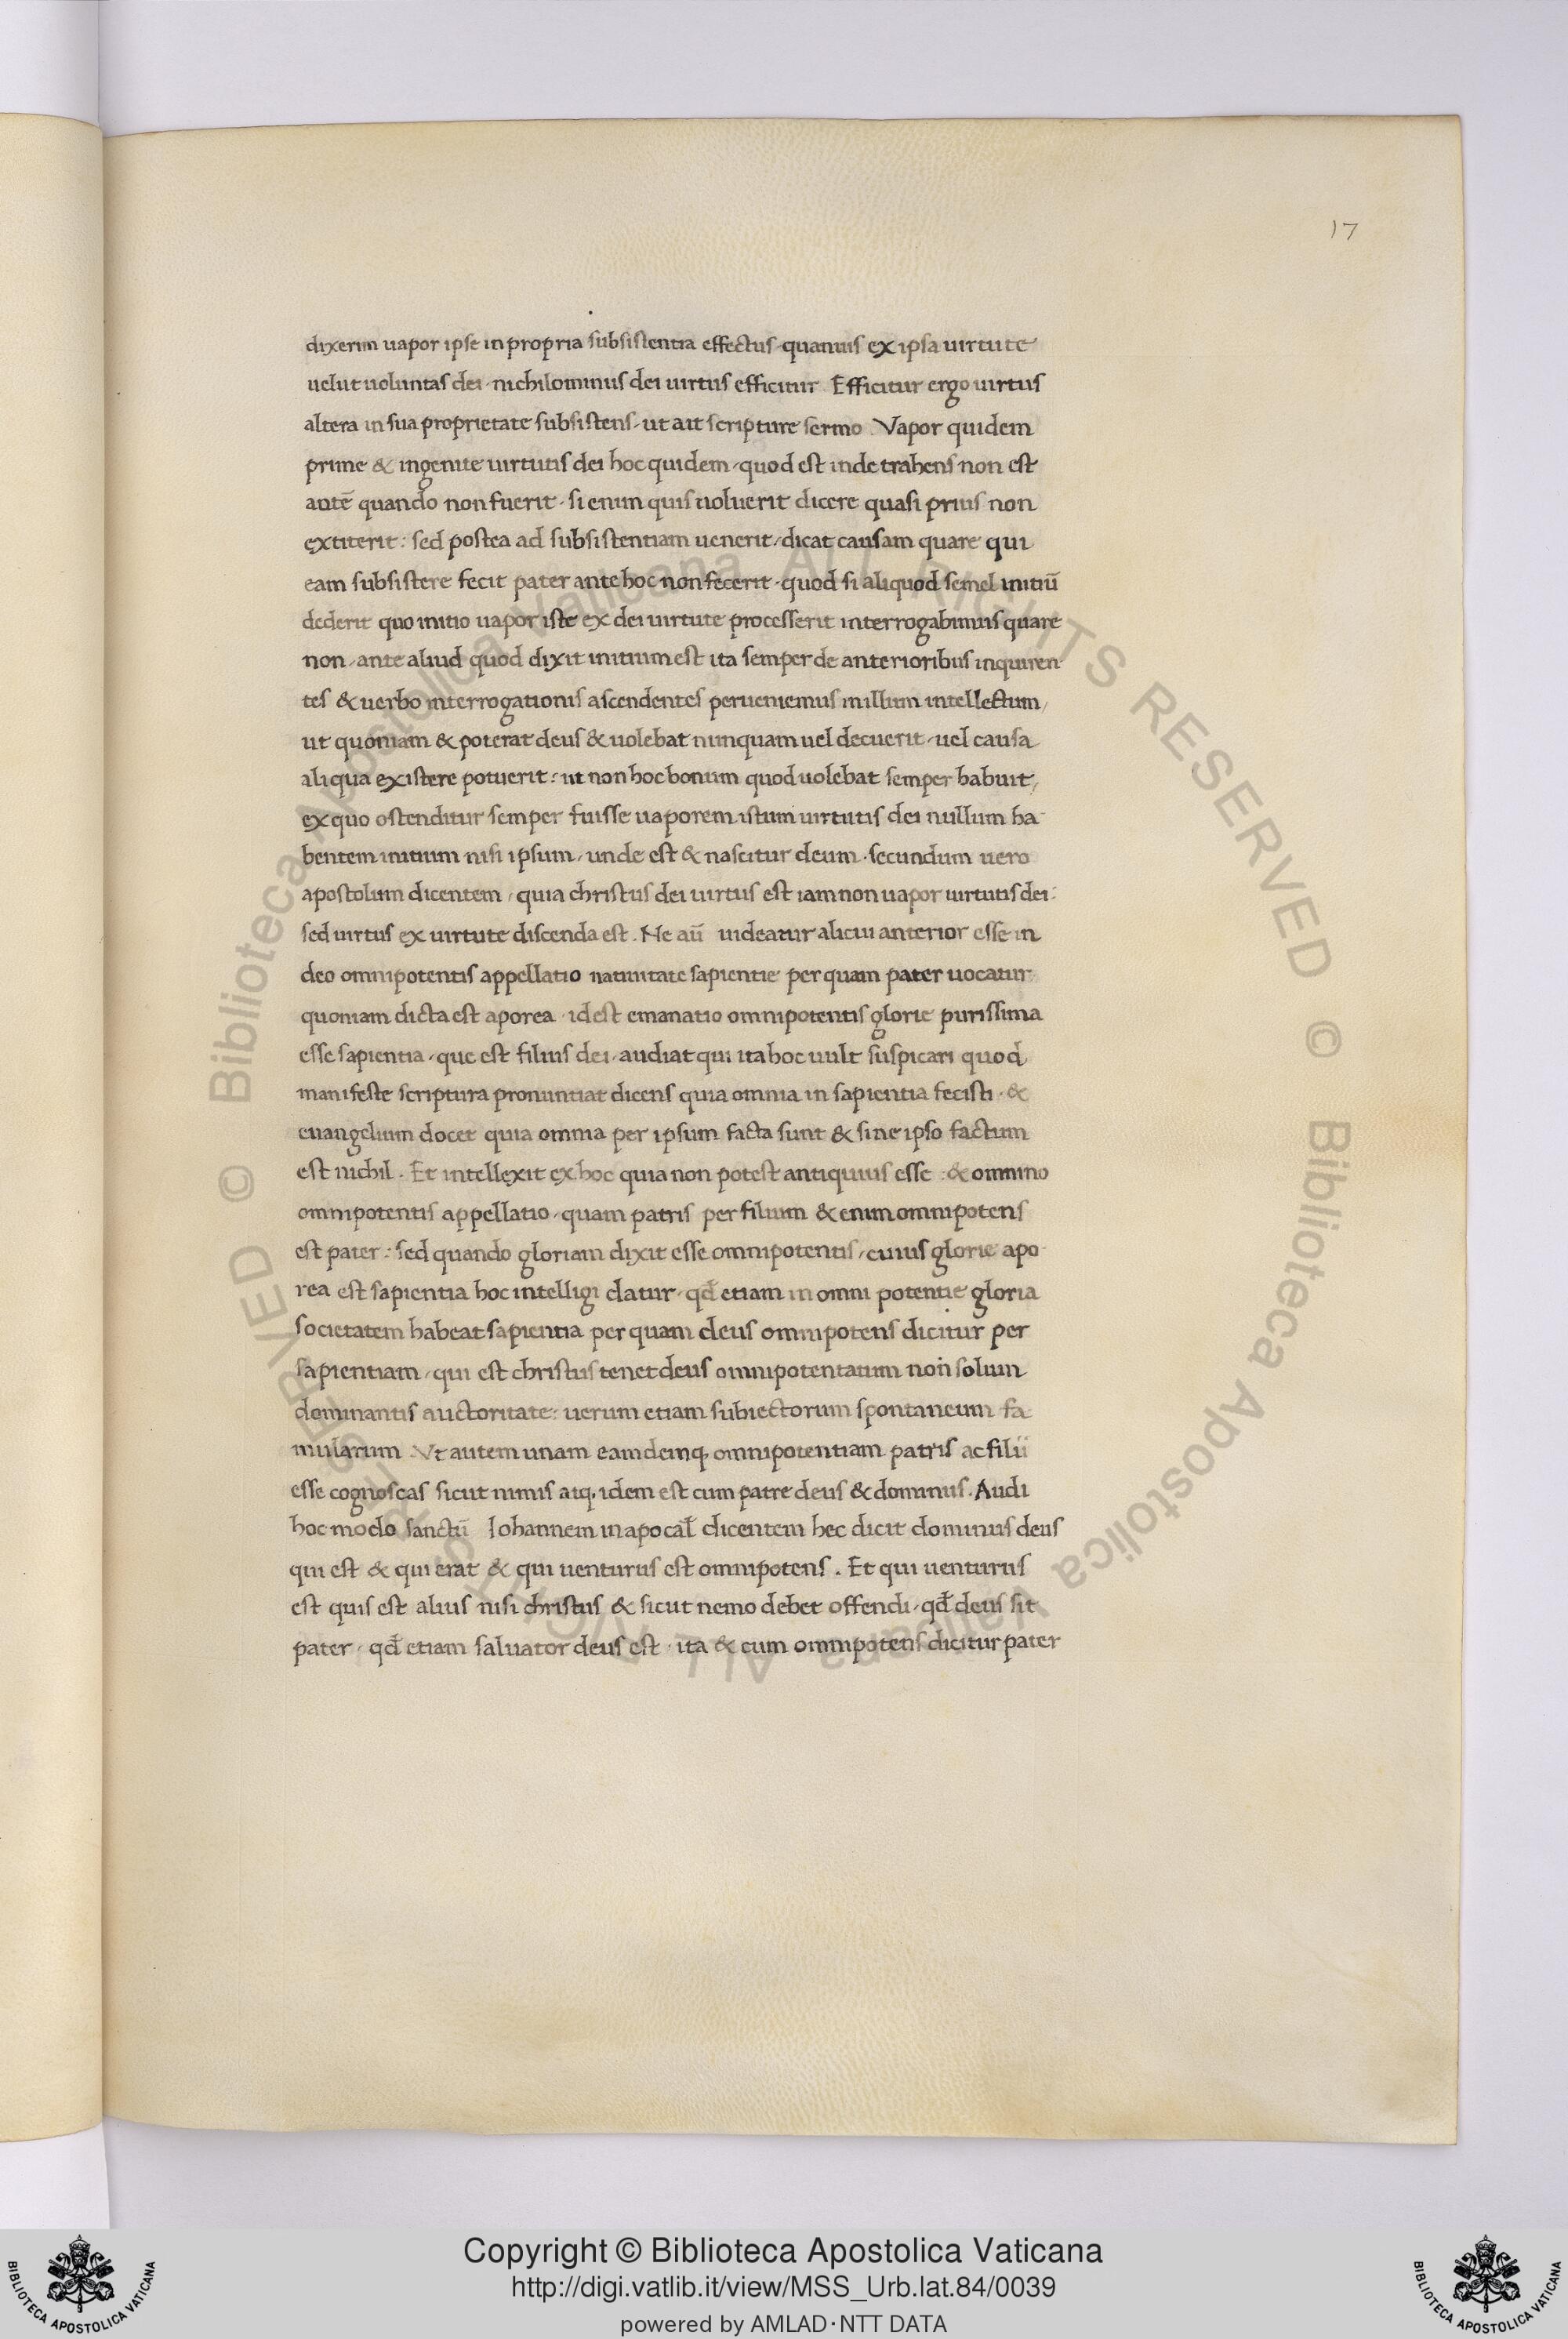 17
dixerim uapor ipse in propria subsistentia effectus quamuis ex ipsa uirtute
uelut uoluntas dei · nichilominus dei uirtus efficitur Efficitur ergo uirtus
altera in sua proprietate subsistens, ut ait scripture sermo. Vapor quidem
prime & ingenite uirtutis dei hoc quidem, quod est inde trahens non est
autē quando non fuerit · si enim quis uoluerit dicere quasi prius non
extiterit: sed postea ad subsistentiam uenerit, dicat causam quare qui
eam subsistere fecit pater ante hoc non fecerit · quod si aliquod semel initiū
dederit quo initio uapor iste ex dei uirtute processerit interrogabimus quare
non, ante aliud quod dixit initium est ita semper de anterioribus inquiren
tes & uerbo interrogationis ascendentes perueniemus in illum intellectum,
ut quoniam & poterat deus & uolebat nunquam uel decuerit, uel causa
aliqua existere potuerit: ut non hoc bonum quod uolebat semper habuit,
ex quo ostenditur semper fuisse uaporem istum uirtutis dei nullum ha
bentem initium nisi ipsum, unde est & nascitur deum · secundum uero
apostolum dicentem, quia christus dei uirtus est iam non uapor uirtutis dei:
sed uirtus ex uirtute discenda est. Ne aū uideatur alicui anterior esse in
deo omnipotentis appellatio natiuitate sapientie per quam pater uocatur
quoniam dicta est aporea · idest emanatio omnipotentis glorie purissima
esse sapientia, que est filius dei, audiat qui ita hoc uult suspicari quod
manifeste scriptura pronuntiat dicens quia omnia in sapientia fecisti · &
euangelium docet quia omnia per ipsum facta sunt & sine ipso factum
est nichil. Et intellexit ex hoc quia non potest antiquius esse : & omnino
omnipotentis appellatio, quam patris per filium & enim omnipotens
est pater: sed quando gloriam dixit esse omnipotentis, cuius glorie apo
rea est sapientia hoc intelligi datur, qđ etiam in omni potentie gloria
societatem habeat sapientia per quam deus omnipotens dicitur per
sapientiam, qui est christus tenet deus omnipotentatum non solum
dominantis auctoritate: uerum etiam subiectorum spontaneum fa
mularum Vt autem unam eamdemq; omnipotentiam patris ac filii
esse cognoscas sicut nimis atq; idem est cum patre deus & dominus. Audi
hoc modo sanctū Iohannem in apocal̄ dicentem hec dicit dominus deus
qui est & qui erat & qui uenturus est omnipotens. Et qui uenturus
est quis est alius nisi christus & sicut nemo debet offendi, qđ deus sit
pater, qđ etiam saluator deus est · ita & cum omnipotens dicitur pater
Biblioteca Apostolica Vaticana ALL RIGHTS RESERVED © Biblioteca Apostolica Vaticana ALL RIGHTS RESERVED ©
Copyright © Biblioteca Apostolica Vaticana
http://digi.vatlib.it/view/MSS_Urb.lat.84/0039
powered by AMLAD·NTT DATA
BIBLIOTECA APOSTOLICA VATICANA
BIBLIOTECA APOSTOLICA VATICANA